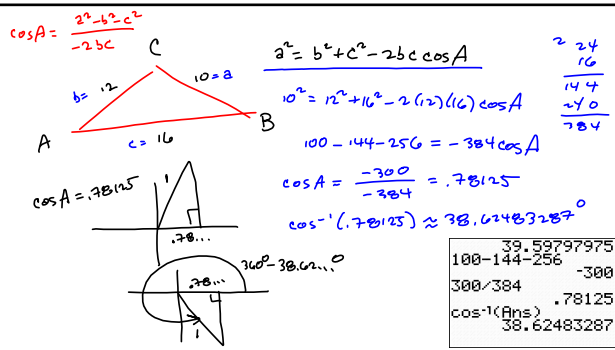 cosA = a²-b²-c² / -2bc
C
b= 12
10=a
A
B
c= 16
a² = b²+c²-2bc cosA
10² = 12²+16²-2(12)(16) cosA
100-144-256 = -384cosA
cosA = -300 / -384 = .78125
cos⁻¹(.78125) ≈ 38.62483287°
2 24
16
144
240
384
cosA=.78125
1
.78...
360°-38.62...°
.78...
1
39.59797975
100-144-256
-300
300/384
.78125
cos⁻¹(Ans)
38.62483287